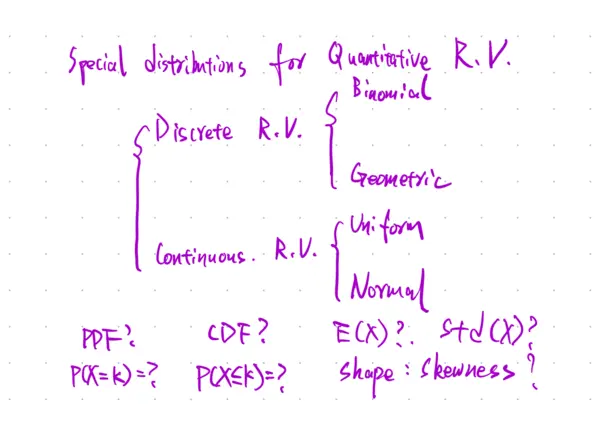 Special distributions for Quantitative R.V.
Binomial
Discrete R.V.
Geometric
Uniform
Continuous. R.V.
Normal
PDF? CDF? E(X)?. Std(X)?
P(X=k)=? P(X≤k)=? shape: skewness?